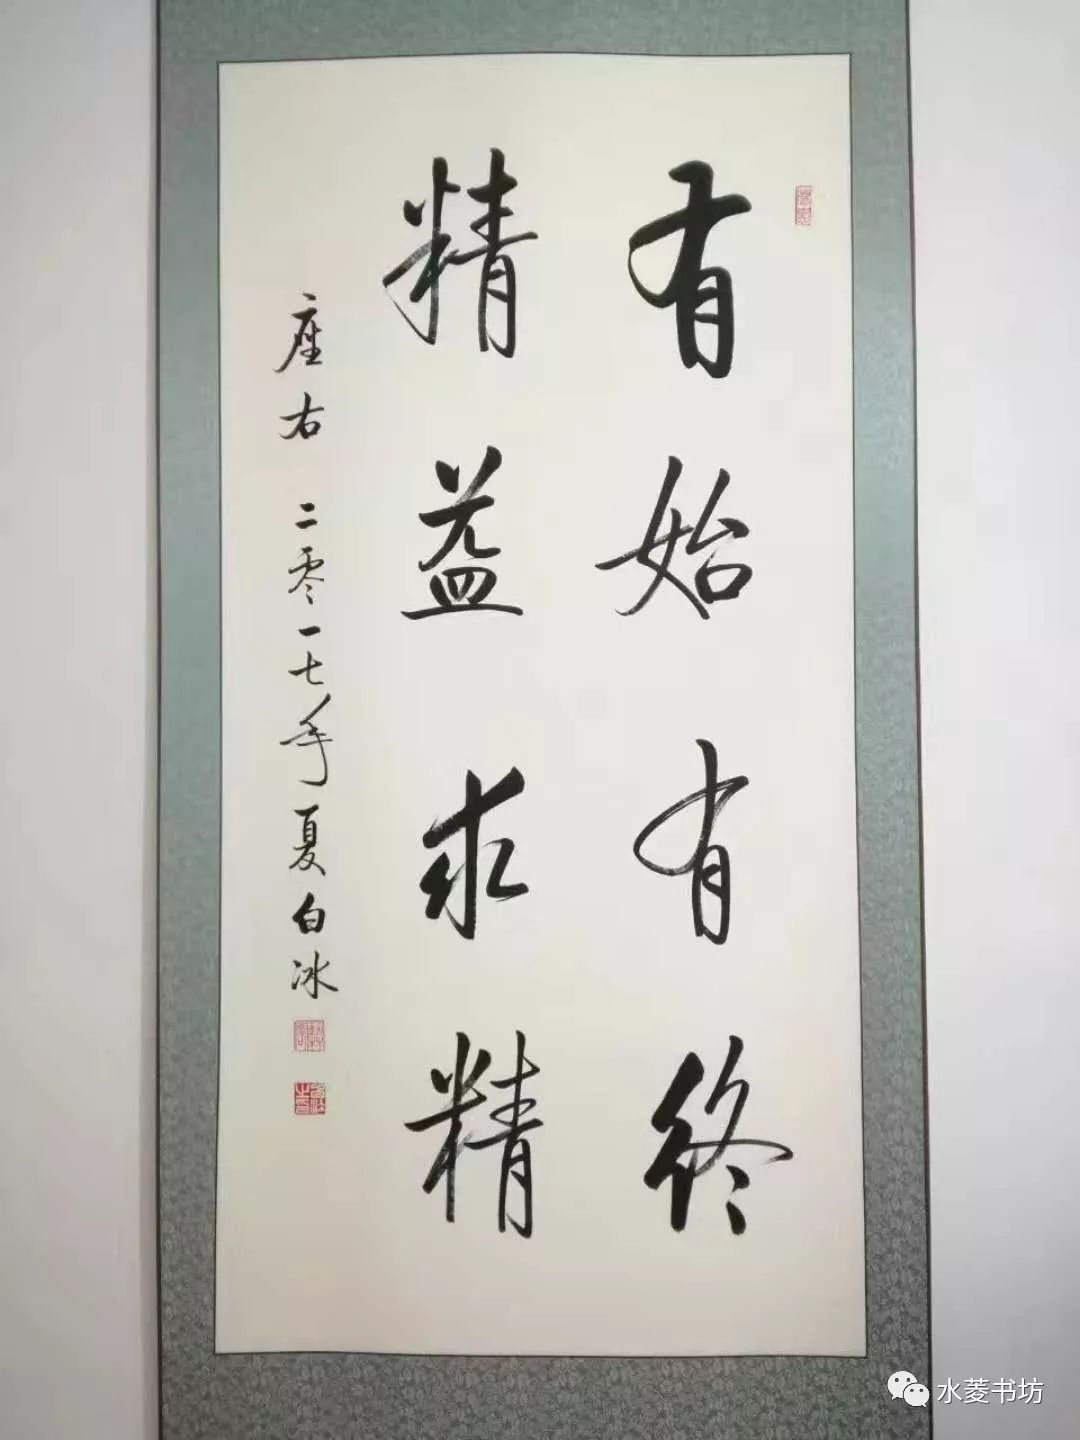 有始有终
精益求精
座右 二零一七年夏白冰
水菱书坊